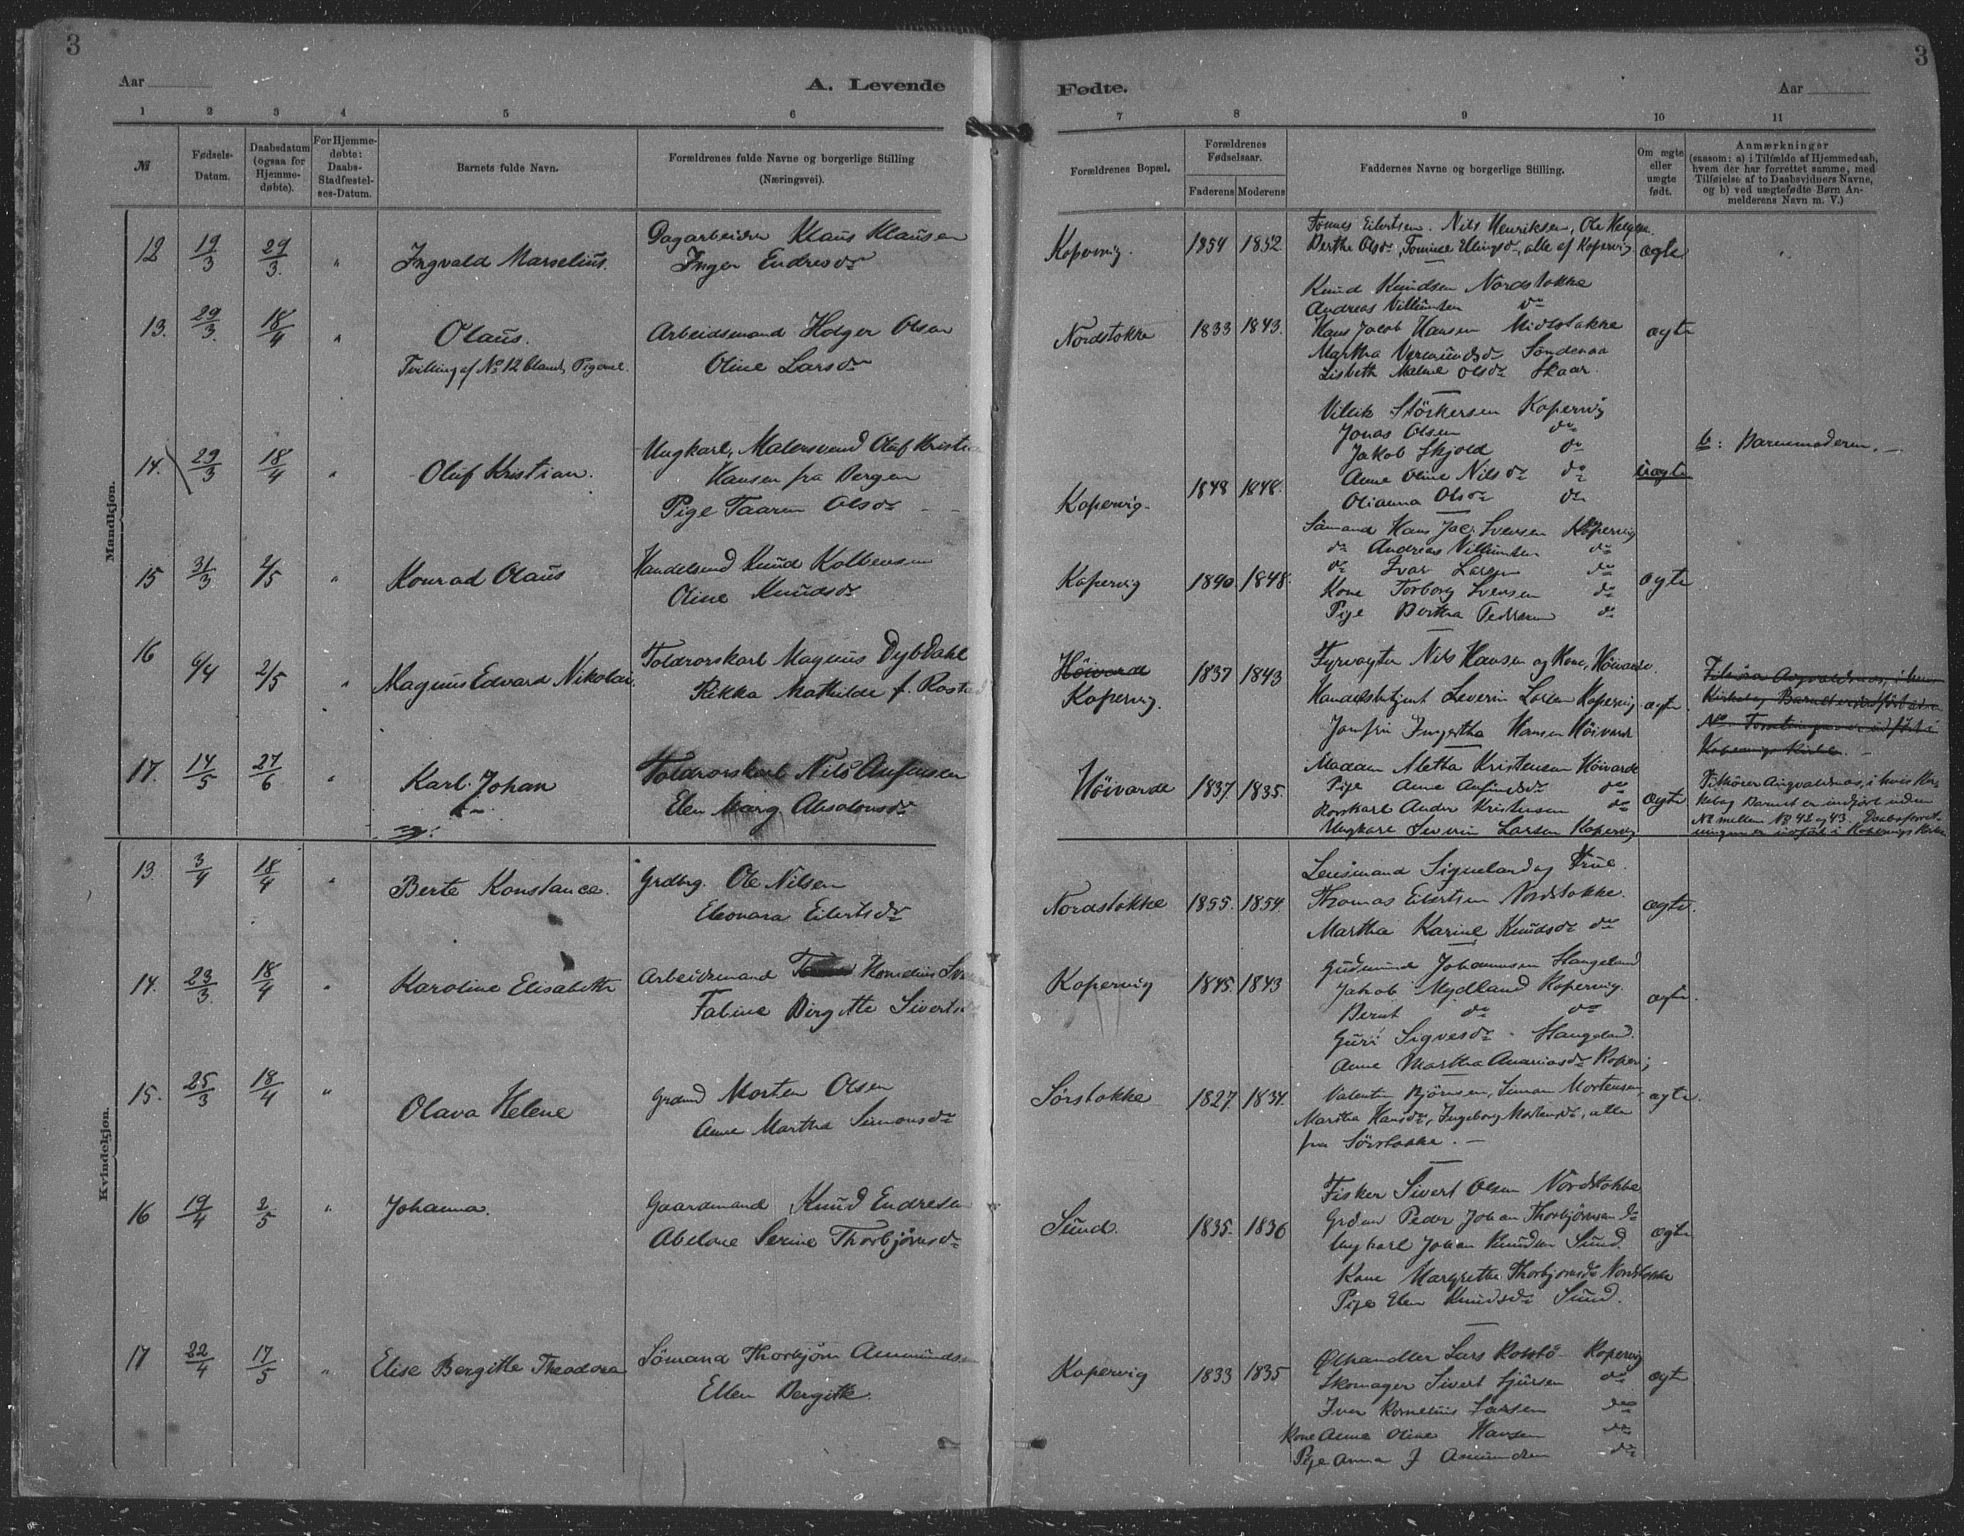 3
Aar
A. Levende
1 2 3 4 5 6
№
Fødsels-Datum.
Daabsdatum (ogsaa for Hjemme-døbte).
For Hjemme-døbte: Daabs-Stadfæstel-ses-Datum.
Barnets fulde Navn.
Forældrenes fulde Navne og borgerlige Stilling (Næringsvei).
Mandkjøn.
12 19/3 29/3 " Ingvald Marselius. Dagarbeider Klaus Klausen
Inger Endresdr
13. 29/3. 18/4 " Olaus. Arbeidsmand Holger Olsen
Tvilling af No 12 blandt Pigerne. Oline Larsdr
14. 29/3 18/4 " Oluf Kristian. Ungkarl, Malersvend Oluf Kristian
Hansen fra Bergen
Pige Taaren Olsdr
15 31/3 2/5 " Konrad Olaus Handelsmd Knud Kolbensen
Oline Knudsdr
16 6/4 2/5 " Magnus Edvard Nikolai Toldrorskarl Magnus Dybdahl
Rikka Mathilde f. Rostad
17. 14/5 27/6 " Karl Johan Toldrorskarl Nils Anfinsen
Elen Marg. Absalonsdr
Kvindekjøn.
13. 3/4 18/4 " Berte Konstance. Grdbrg. Ole Nilsen
Eleonara Eilertsdr
14. 23/3. 18/4 " Karoline Elisabeth Arbeidsmand Kornelius
Tabine Birgitte Sivertsdr
15. 25/3 18/4 " Olava Helene Grdmd Morten Olsen
Anne Martha Simonsdr
16 19/4 2/5 " Johanna. Gaardmand Knud Endresen
Abelone Serine Thorbjørnsdr
17 22/4 17/5 " Elise Bergitte Theodora Sømand Thorbjørn Amundsen
Ellen Bergitte.
3
Fødte.
Aar
7 8 9 10 11
Forældrenes Bopæl.
Forældrenes Fødselsaar.
Faderens Moderens
Faddernes Navne og borgerlige Stilling.
Om ægte eller uægte født.
Anmærkninger
(saasom: a) i Tilfælde af Hjemmedaab,
hvem der har forrettet samme, med
Tilføielse af to Daabsvidners Navne,
og b) ved uægtefødte Børn An-
melderens Navn m. V.)
Kopervig. 1854 1852. Tønnes Eilertsen. Nils Henriksen, Ole Helgesen.
Bertha Olsdr, Tomine Ellingsdr, alle af Kopervig ægte
Nordstokke 1833 1843. Knud Knudsen Nordstokke
Andreas Villumsen do
Hans Jacob Hansen Midtstokke ægte
Martha Vermundsdr Søndenaa
Lisbeth Malene Olsdr Skaar.
Kopervig. 1848 1848. Villik Størkersen Kopervig
Jonas Olsen do
Jakob Skjold do
Anne Oline Nilsdr do uægte
Olianna Olsdr do
b: Barnemoderen.
Kopervig 1840. 1848. Sømand Hans Jac. Svensen Kopervig
do Andreas Villumsen do
do Ivar Larsen do
Kone Torborg Svensen do ægte
Pige Bertha Pedersen do
Høivarde
Kopervig. 1837 1843 Fyrvogter Nils Hansen og Kone, Høivarde
Handelsbetjent Severin Larsen Kopervig
Jomfru Ingertha Hansen Høivarde ægte.
Høivarde 1837. 1835. Madam Metha Kristensen Høivarde
Pige Anne Anfindsdr do
Rorskarl Ander Kristensen do
Ungkarl Severin Larsen Kopervig ægte
Tilhører Augvaldsnes, i hvis Kir-
kebog Barnet er indført uden
No mellem No 42 og 43. Daabsforret-
ningen er udført i Kopervigs Kirke
Nordstokke 1855. 1854. Lensmand Signeland og Frue.
Thomas Eilertsen Nordstokke.
Martha Karine Knudsdr do ægte.
Kopervig 1845. 1843 Gudmund Johannesen Stangeland
Jakob Mydland Kopervig.
Bernt do do
Guri Sigvesdr Stangeland.
Anne Martha Ananiasdr Kopervig ægte.
Sørstokke 1827. 1834. Valentin Bjørnsen, Simon Mortensen,
Martha Hansdr, Ingeborg Mortensdr, alle
fra Sørstokke. ægte.
Sund. 1835. 1836 Fisker Sivert Olsen Nordstokke
Grdmd Peder Johan Thorbjørnsen do
Ungkarl Johan Knudsen Sund.
Kone Margrethe Thorbjørnsdr Nordstokke
Pige Elen Knudsdr Sund. ægte
Kopervig 1833 1835 Ølhandler Lars Rossbø Kopervig
Skomager Sivert Sjursen do
Iver Kornelius Larsen do
Kone Anne Oline Hansen do
Pige Anna J Amundsen do ægte